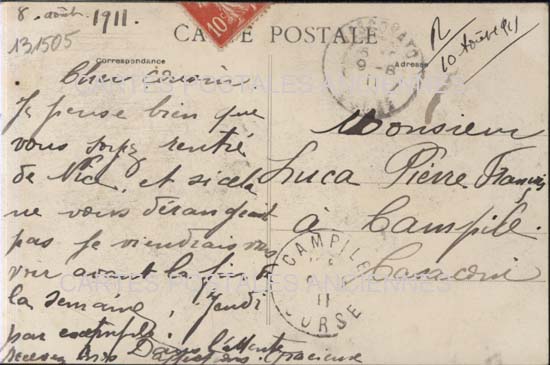 8. août. 1911.
131505
CARTE POSTALE
Correspondance
Adresse
R
10 Août 1911
10
9-8
11
Cher Cousin
Je pense bien que
vous soyez rentré
de Nice, et si cela
ne vous dérangeait
pas je viendrais vous
voir avant la fin de
la semaine, Jeudi
par exemple.
Dans l'attente
recevez mes affections.
Monsieur
Luca Pierre François
à Campile
Casacconi
CAMPILE
11
CORSE
CARTES POSTALES ANCIENNES
CARTES POSTALES ANCIENNES